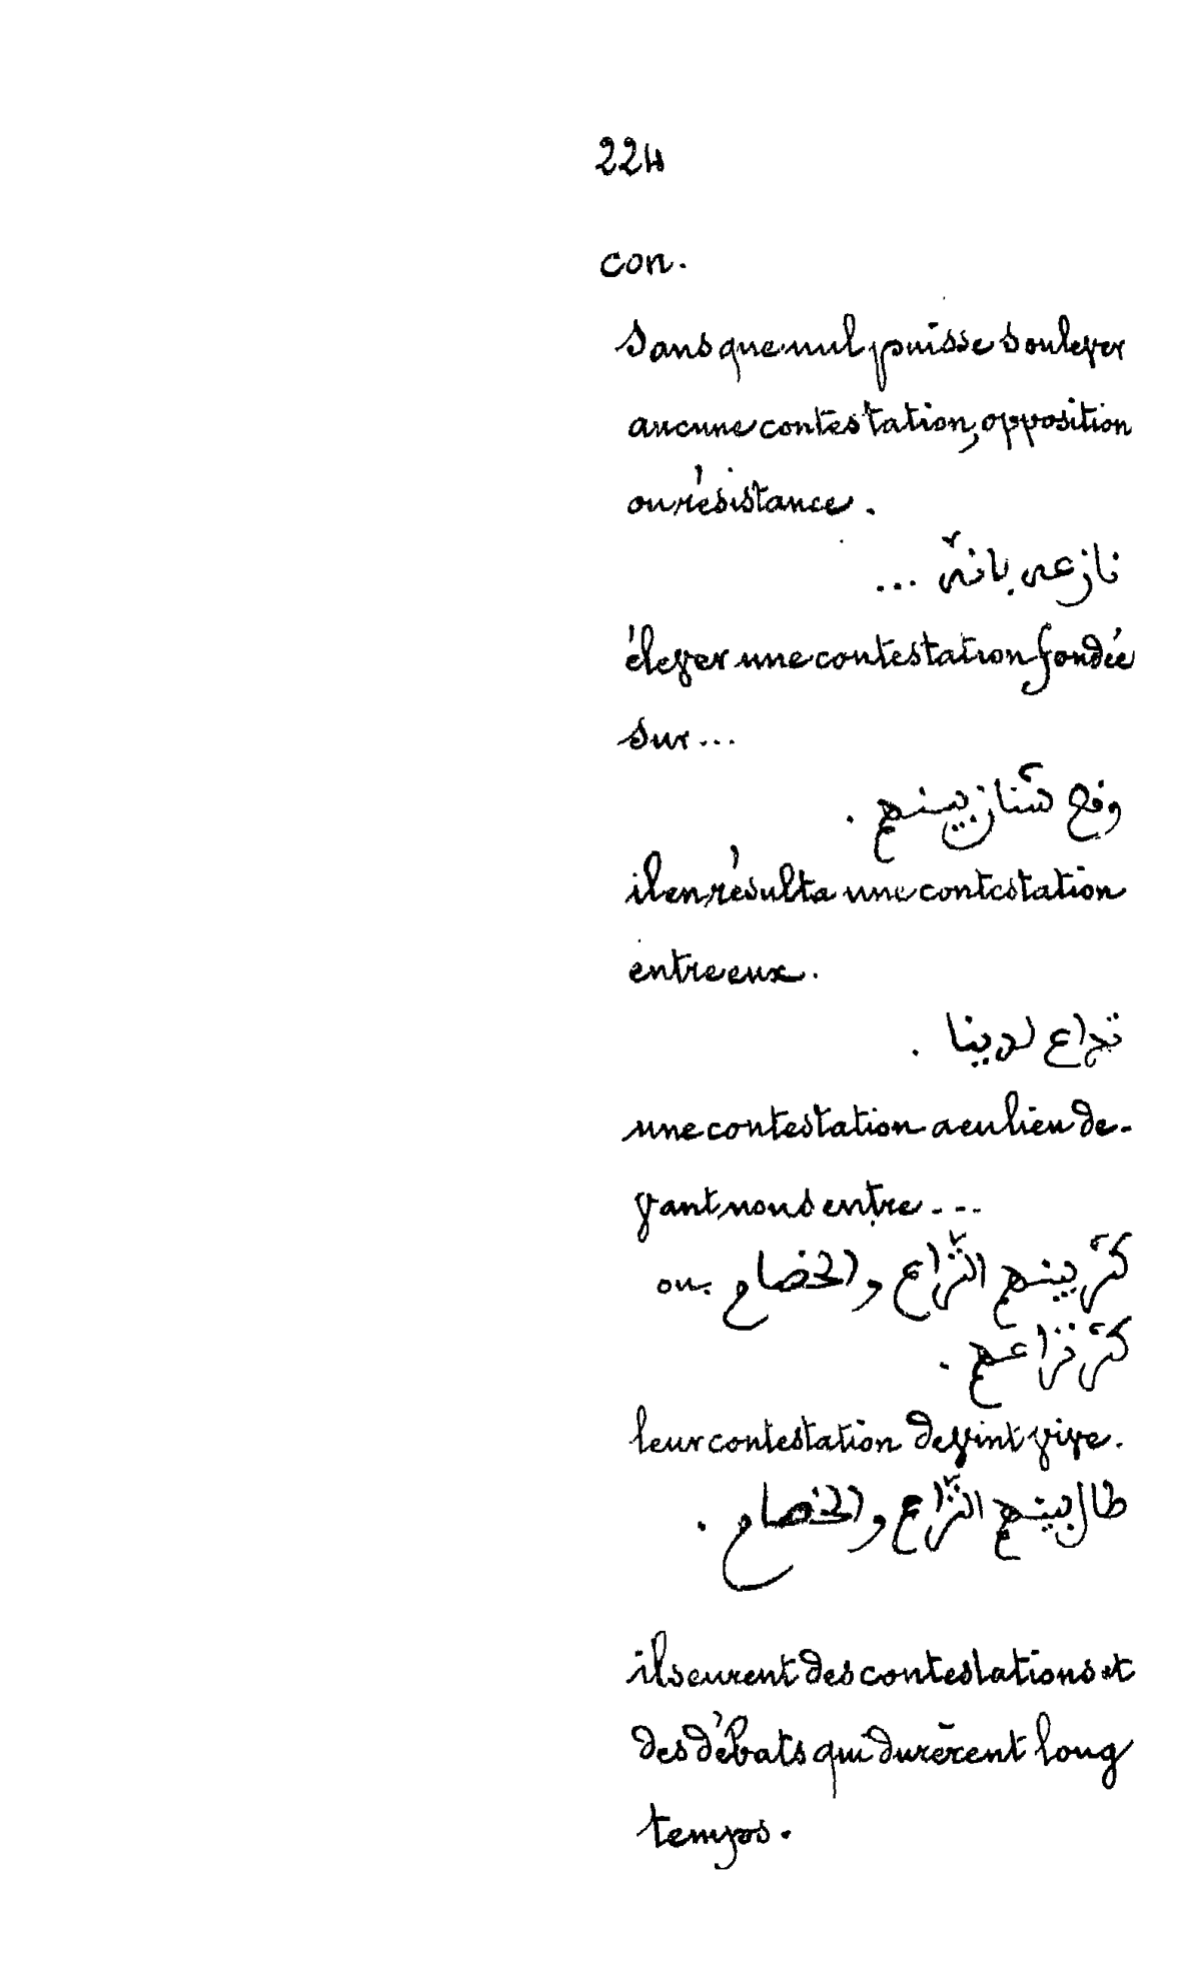 224
con.
Sans que nul puisse soulever
aucune contestation, opposition
ou résistance.
نازعه بانّه ...
élever une contestation fondée
sur ...
وقع تشناز بينهم .
il en résulta une contestation
entre eux.
تداع لدينا .
une contestation a eu lieu de-
vant nous entre ...
كثر بينهم النّزاع والخصام ou.
كثر نزاعهم .
leur contestation devint vive.
طال بينهم النّزاع والخصام .
ils eurent des contestations et
des débats qui durèrent long
temps.